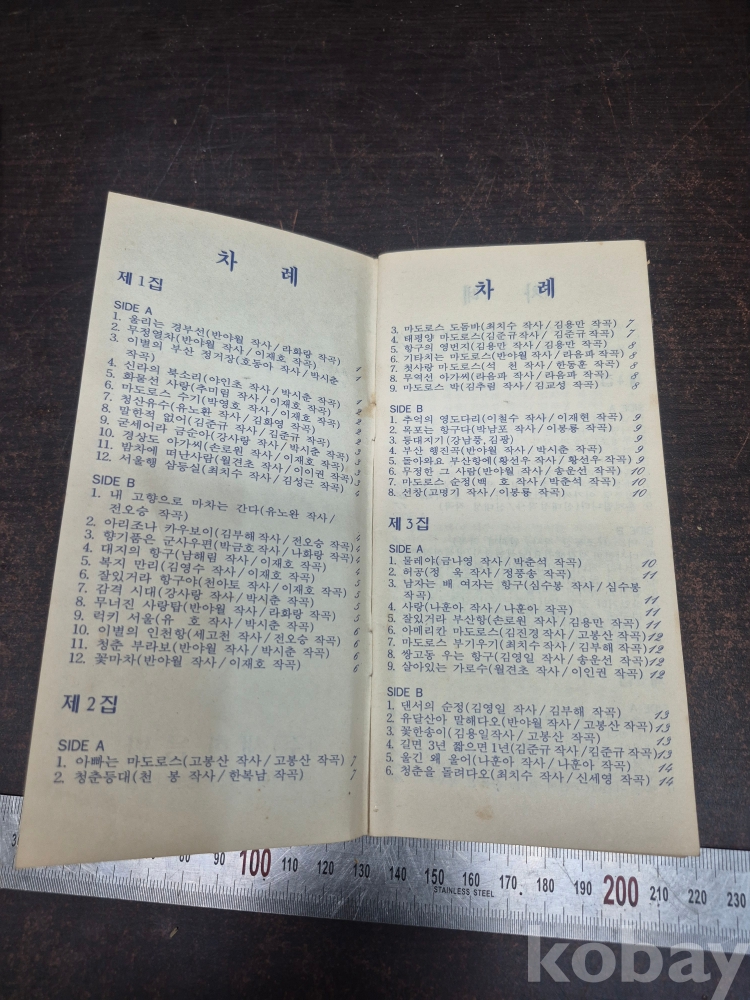 차 례
제1집
SIDE A
1. 울리는 경부선(반야월 작사/라화랑 작곡)
2. 무정열차(반야월 작사/이재호 작곡)
3. 이별의 부산 정거장(호동아 작사/박시춘
작곡) 1
4. 신라의 북소리(야인초 작사/박시춘 작곡) 1
5. 화물선 사랑(추미림 작사/이재호 작곡)
6. 마도로스 수기(박영호 작사/이재호 작곡) 2
7. 청산유수(유노완 작사/김화영 작곡) 2
8. 말한적 없어(김준규 작사/김준규 작곡) 2
9. 굳세어라 금순아(강사랑 작사/박시춘 작곡)
10. 경상도 아가씨(손로원 작사/이재호 작곡) 3
11. 밤차에 떠난사람(월견초 작사/이인권 작곡) 3
12. 서울행 삼등실(최치수 작사/김성근 작곡) 4
SIDE B
1. 내 고향으로 마차는 간다(유노완 작사/
전오승 작곡) 4
2. 아리조나 카우보이(김부해 작사/전오승 작곡) 4
3. 향기품은 군사우편(박금호 작사/나화랑 작곡)
4. 대지의 항구(남해림 작사/이재호 작곡)
5. 복지 만리(김영수 작사/이재호 작곡) 5
6. 잘있거라 항구야(천아토 작사/이재호 작곡) 5
7. 감격 시대(강사랑 작사/박시춘 작곡) 5
8. 무너진 사랑탑(반야월 작사/라화랑 작곡)
9. 럭키 서울(유 호 작사/박시춘 작곡)
10. 이별의 인천항(세고천 작사/전오승 작곡) 6
11. 청춘 부라보(반야월 작사/박시춘 작곡) 6
12. 꽃마차(반야월 작사/이재호 작곡) 6
제2집
SIDE A
1. 아빠는 마도로스(고봉산 작사/고봉산 작곡) 7
2. 청춘등대(천 봉 작사/한복남 작곡) 7
차 례
3. 마도로스 도돔바(최치수 작사/김용만 작곡) 7
4. 태평양 마도로스(김준규작사/김준규 작곡) 7
5. 항구의 영먼지(김용만 작사/김용만 작곡) 8
6. 기타치는 마도로스(반야월 작사/라음파 작곡) 8
7. 첫사랑 마도로스(석 천 작사/한동훈 작곡) 8
8. 무역선 아가씨(라음파 작사/라음파 작곡) 8
9. 마도로스 박(김추림 작사/김교성 작곡) 8
SIDE B
1. 추억의 영도다리(이철수 작사/이재현 작곡) 9
2. 목포는 항구다(박남포 작사/이봉룡 작곡) 9
3. 등대지기(강남풍, 김광) 9
4. 부산 행진곡(반야월 작사/박시춘 작곡) 9
5. 돌아와요 부산항에(황선우 작사/황선우 작곡) 9
6. 무정한 그 사람(반야월 작사/송운선 작곡) 10
7. 마도로스 순정(백 호 작사/박춘석 작곡) 10
8. 선창(고명기 작사/이봉룡 작곡) 10
제3집
SIDE A
1. 물레야(금나영 작사/박춘석 작곡) 10
2. 허공(정 욱 작사/정풍송 작곡) 11
3. 남자는 배 여자는 항구(심수봉 작사/심수봉
작곡) 11
4. 사랑(나훈아 작사/나훈아 작곡) 11
5. 잘있거라 부산항(손로원 작사/김용만 작곡) 11
6. 아메리칸 마도로스(김진경 작사/고봉산 작곡) 12
7. 마도로스 부기우기(최치수 작사/김부해 작곡)
8. 쌍고동 우는 항구(김영일 작사/송운선 작곡) 12
9. 살아있는 가로수(월견초 작사/이인권 작곡) 12
SIDE B
1. 댄서의 순정(김영일 작사/김부해 작곡)
2. 유달산아 말해다오(반야월 작사/고봉산 작곡) 13
3. 꽃한송이(김용일작사/고봉산 작곡) 13
4. 길면 3년 짧으면 1년(김준규 작사/김준규 작곡) 13
5. 울긴 왜 울어(나훈아 작사/나훈아 작곡) 14
6. 청춘을 돌려다오(최치수 작사/신세영 작곡) 14
80 90 100 110 120 130 140 150 160 170 180 190 200 210 220 230
STAINLESS STEEL
kobay